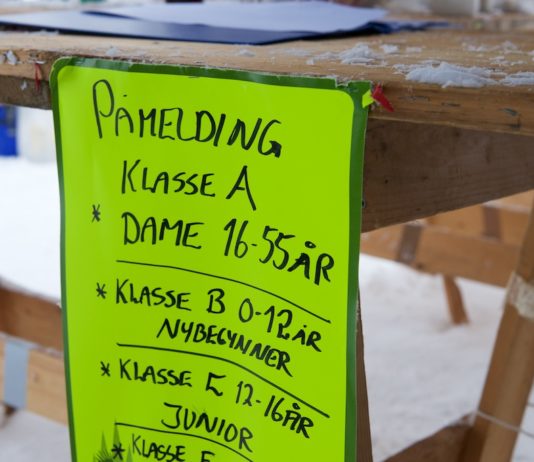 PÅMELDING
KLASSE A
* DAME 16-55 ÅR
* KLASSE B 0-12 ÅR
NYBEGYNNER
* KLASSE E 12-16 ÅR
JUNIOR
* KLASSE